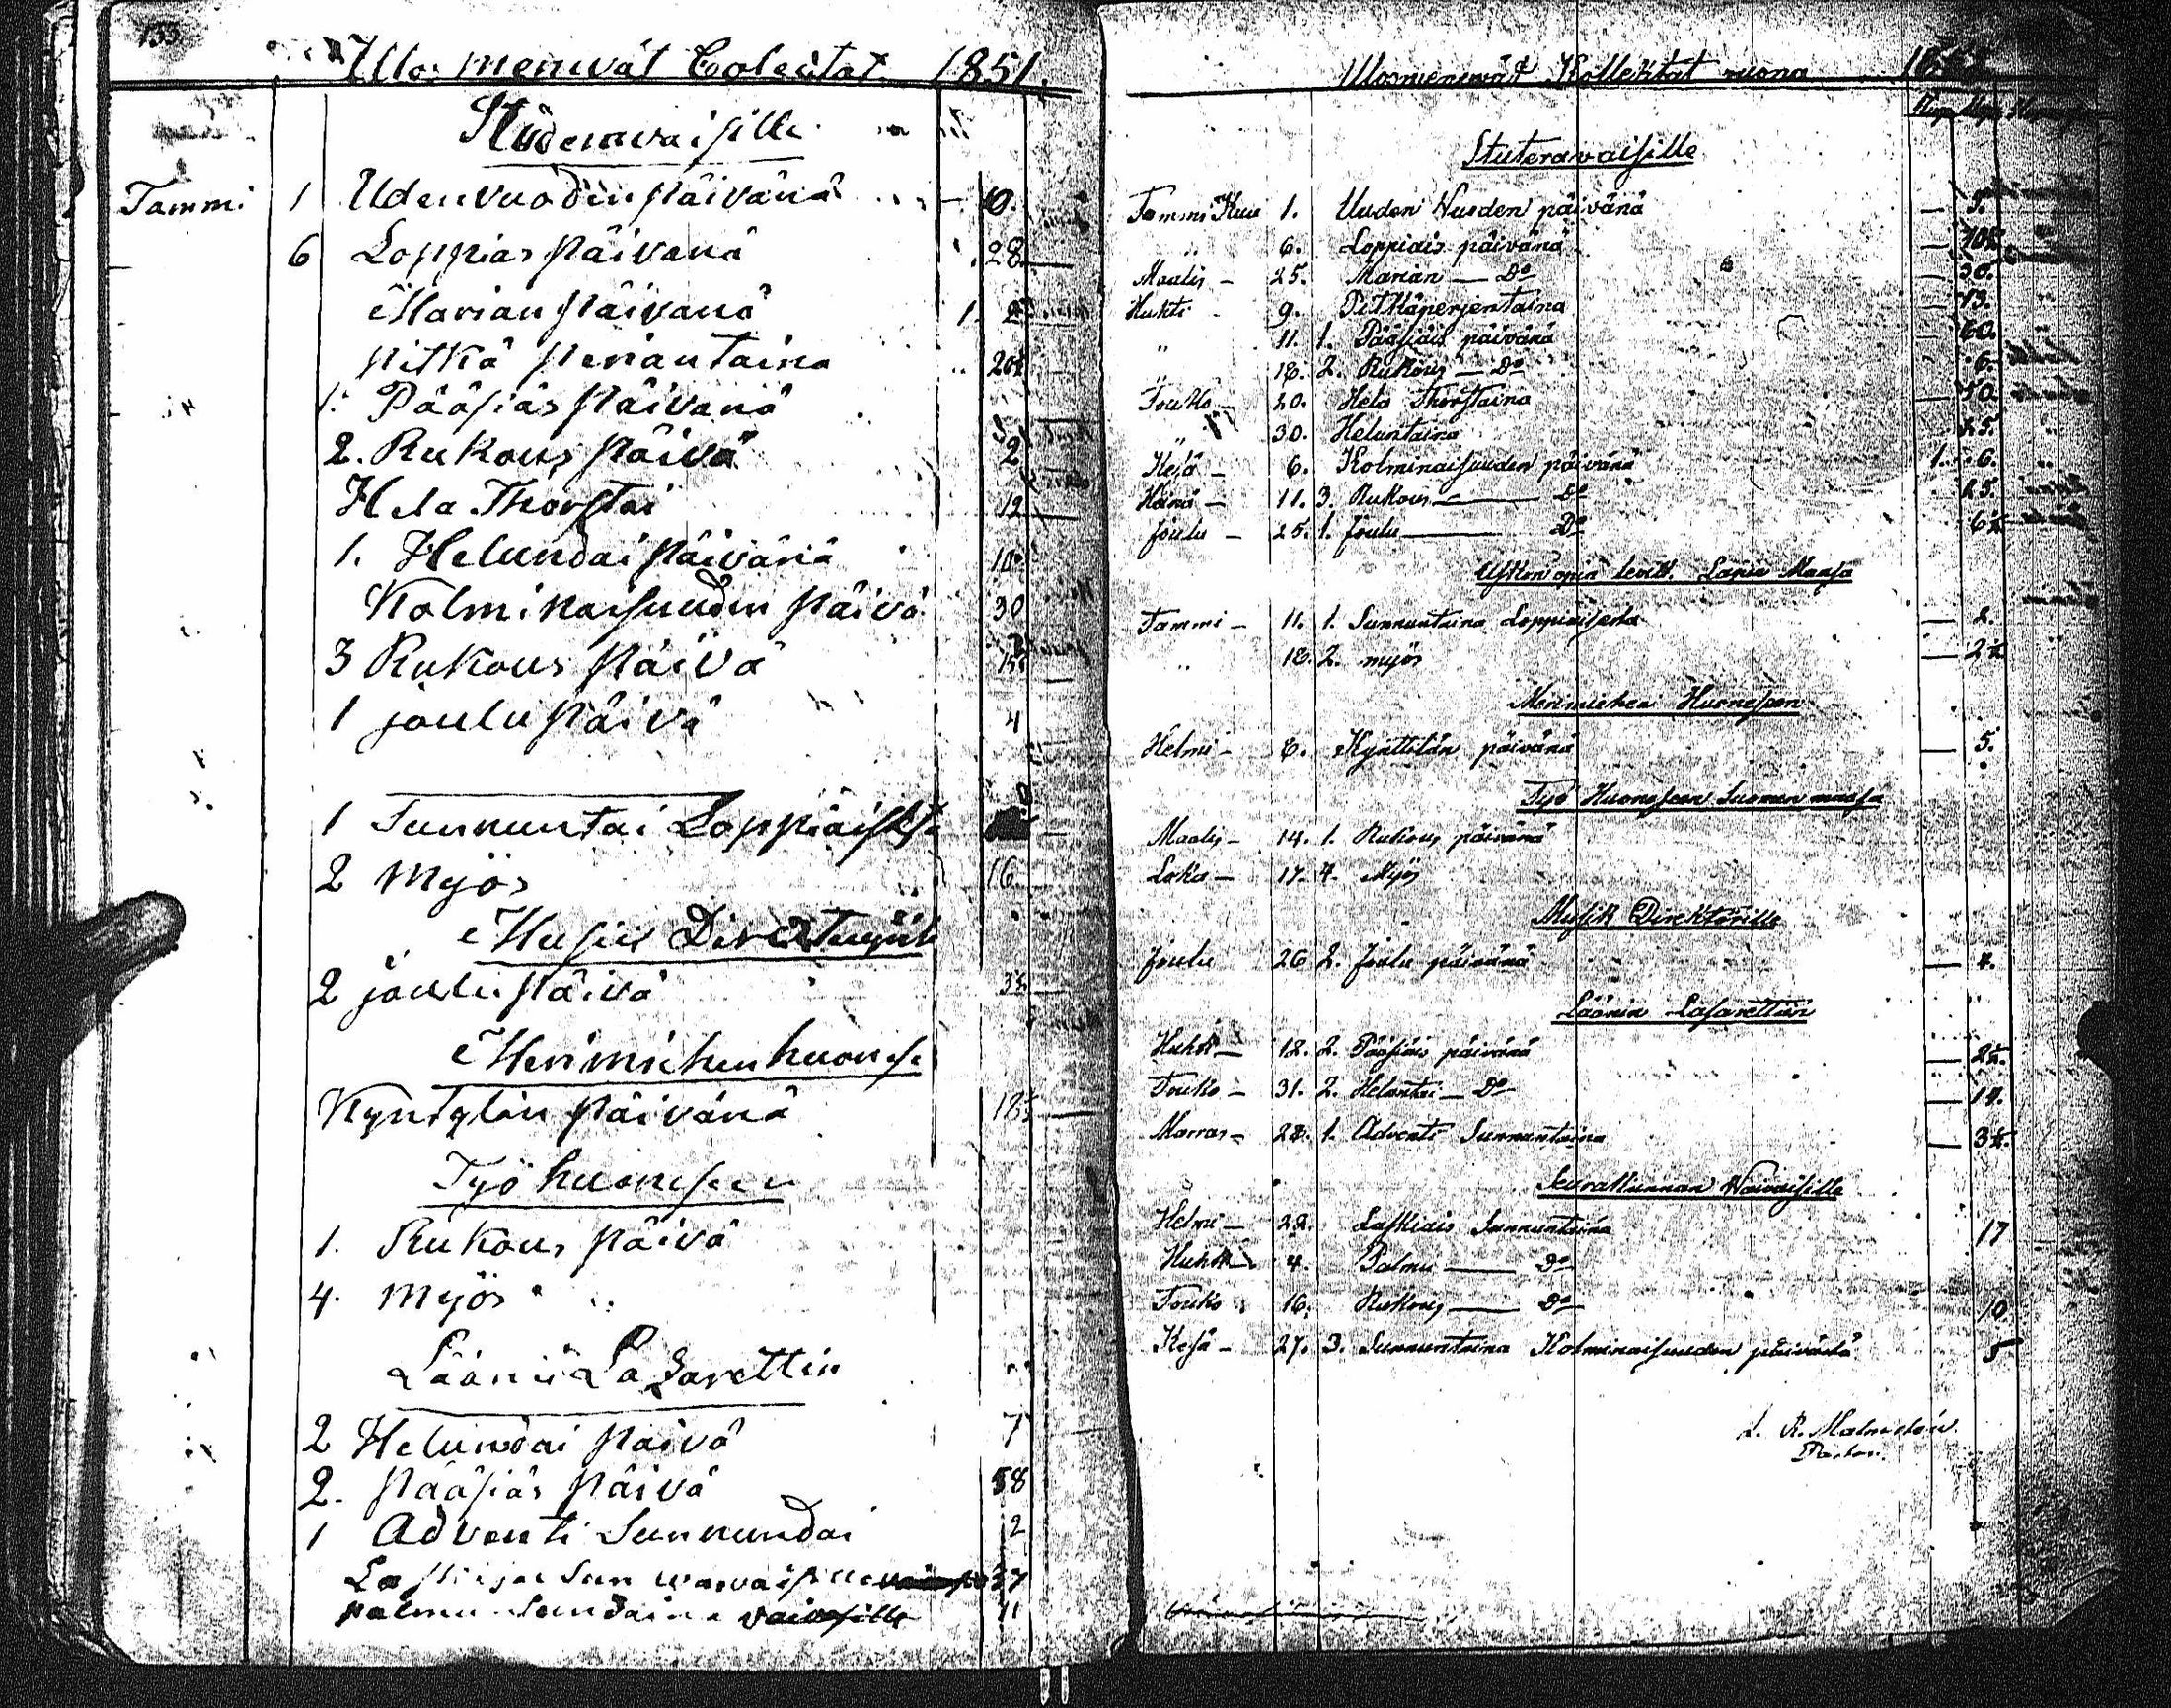 133
Ulos menevät Colectat 1851.
Stüderavaisille
Tammi 1 Udenvuoden päivänä — 10.
6 Loppias päivänä 28
Marian päivänä 1. 2
pitkä periantaina 20½
1. Pääsiäs päivänä
2. Rukous päivä 2
Hela Thorstai 12
1. Helundai päivänä 10
Kolminaisuuden päivä 30
3 Rukous päivä 15
1 joulu päivä 4
1 Sunnuntai Loppiäisest
2 Myös 16
Musik
2 joulu päivä 3½
Merimiehen huonese
Kyntylän päivänä 18½
Työ huonesen
1. Rukous päivä
4. Myös
Läänin Lazarettin
2 Helundai päivä 7
2. pääsiäs päivä 58
1 Adventi Sunnundai 2
Sun waivaisille 37
palmu Sundaina vaivasille 11
Ulosmenewät Kollektat vuona
Stuteravaisille
Tammi Kuu 1. Uuden Vuoden päivänä — 9.
„ 6. Loppiais päivänä — 10½
Maalis — 25. Marian — Do — 30.
Huhti - 9. Pitkäperjentaina — 13.
„ 11. 1. Pääsiäis päivänä — 60.
„ 18. 2. Rukous — Do — 6.
Touko — 20. Hela Thorstaina — 10.
„ 30. Heluntaina 25.
Kesä — 6. Kolminaisuuden päivänä 1. 6.
Heinä — 11. 3. Rukous — Do 25.
Joulu — 25. 1. Joulu — Do 6½
Uskon opin levit. Lapin Maasa
Tammi — 11. 1. Sunnuntaina Loppiaisesta — 2.
„ 18. 2. myös — 2½
Merimiehen Huoneseen
Helmi — 8. Kynttilän päivänä — 5.
Työ Huoneseen Suomen maasa
Maalis — 14. 1. Rukous päivänä
Loka — 17. 4. Myös
Musik Direktörille
Joulu 26 2. Joulu päivänä — 4.
Läänin Lasarettiin
Huhti — 12. 2. Pääsiäis päivänä — 2½.
Touko — 31. 2. Heluntai — Do — 14.
Marras — 28. 1. Adventi Sunnuntaina — 3½.
Seurakunnan Waivaisille
Helmi — 22. Laskiais Sunnuntaina 17
Huhti — 4. Palmu — Do
Touko 16. Rukous — Do 10
Kesä — 27. 3. Sunnuntaina Kolminaisuuden päivästä 5